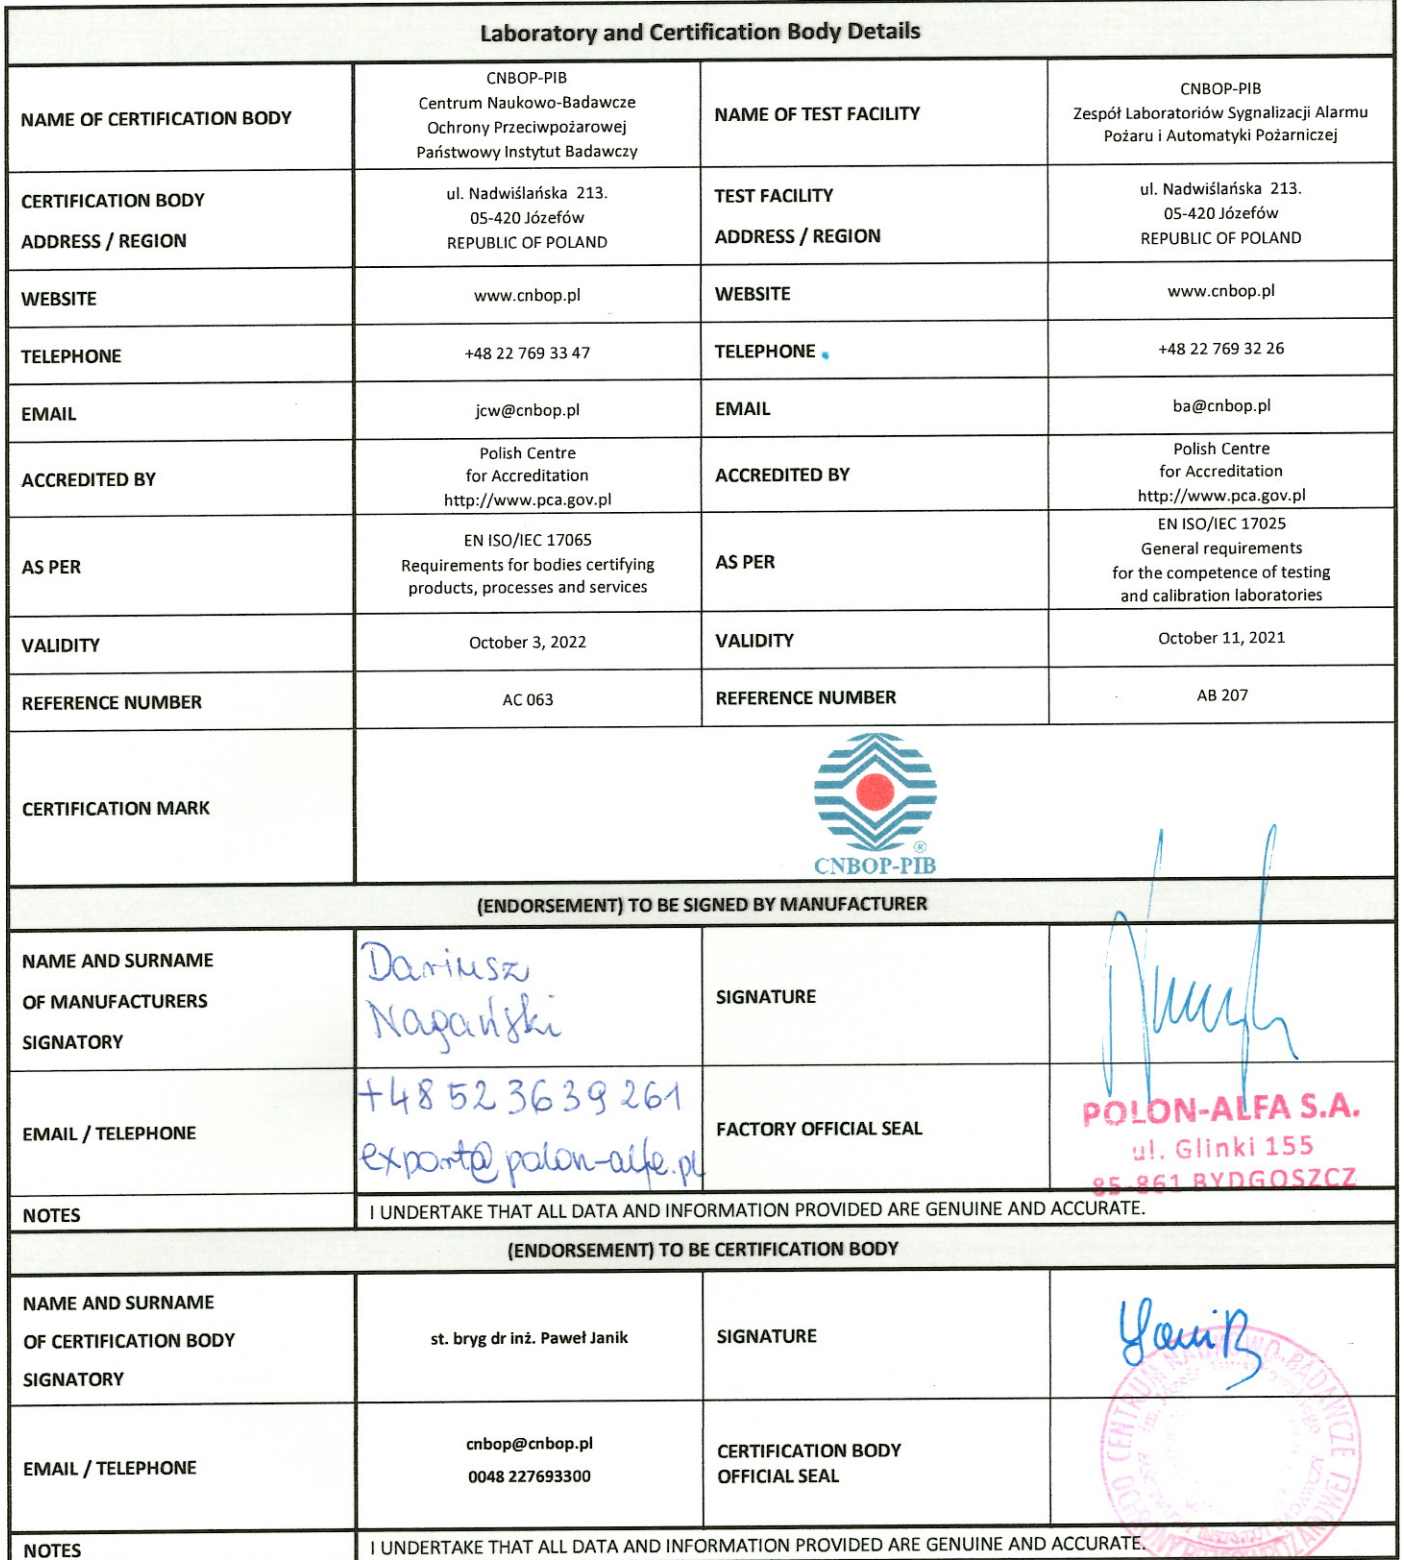 Laboratory and Certification Body Details
NAME OF CERTIFICATION BODY
CNBOP-PIB
Centrum Naukowo-Badawcze
Ochrony Przeciwpożarowej
Państwowy Instytut Badawczy
NAME OF TEST FACILITY
CNBOP-PIB
Zespół Laboratoriów Sygnalizacji Alarmu
Pożaru i Automatyki Pożarniczej
CERTIFICATION BODY
ADDRESS / REGION
ul. Nadwiślańska 213.
05-420 Józefów
REPUBLIC OF POLAND
TEST FACILITY
ADDRESS / REGION
ul. Nadwiślańska 213.
05-420 Józefów
REPUBLIC OF POLAND
WEBSITE
www.cnbop.pl
WEBSITE
www.cnbop.pl
TELEPHONE
+48 22 769 33 47
TELEPHONE
+48 22 769 32 26
EMAIL
jcw@cnbop.pl
EMAIL
ba@cnbop.pl
ACCREDITED BY
Polish Centre
for Accreditation
http://www.pca.gov.pl
ACCREDITED BY
Polish Centre
for Accreditation
http://www.pca.gov.pl
AS PER
EN ISO/IEC 17065
Requirements for bodies certifying
products, processes and services
AS PER
EN ISO/IEC 17025
General requirements
for the competence of testing
and calibration laboratories
VALIDITY
October 3, 2022
VALIDITY
October 11, 2021
REFERENCE NUMBER
AC 063
REFERENCE NUMBER
AB 207
CERTIFICATION MARK
®
CNBOP-PIB
(ENDORSEMENT) TO BE SIGNED BY MANUFACTURER
NAME AND SURNAME
OF MANUFACTURERS
SIGNATORY
Dariusz
Nagański
SIGNATURE
EMAIL / TELEPHONE
+48 52 3639 261
export@polon-alfa.pl
FACTORY OFFICIAL SEAL
POLON-ALFA S.A.
ul. Glinki 155
85-861 BYDGOSZCZ
NOTES
I UNDERTAKE THAT ALL DATA AND INFORMATION PROVIDED ARE GENUINE AND ACCURATE.
(ENDORSEMENT) TO BE CERTIFICATION BODY
NAME AND SURNAME
OF CERTIFICATION BODY
SIGNATORY
st. bryg dr inż. Paweł Janik
SIGNATURE
EMAIL / TELEPHONE
cnbop@cnbop.pl
0048 227693300
CERTIFICATION BODY
OFFICIAL SEAL
CENTRUM NAUKOWO-BADAWCZE
NOTES
I UNDERTAKE THAT ALL DATA AND INFORMATION PROVIDED ARE GENUINE AND ACCURATE.